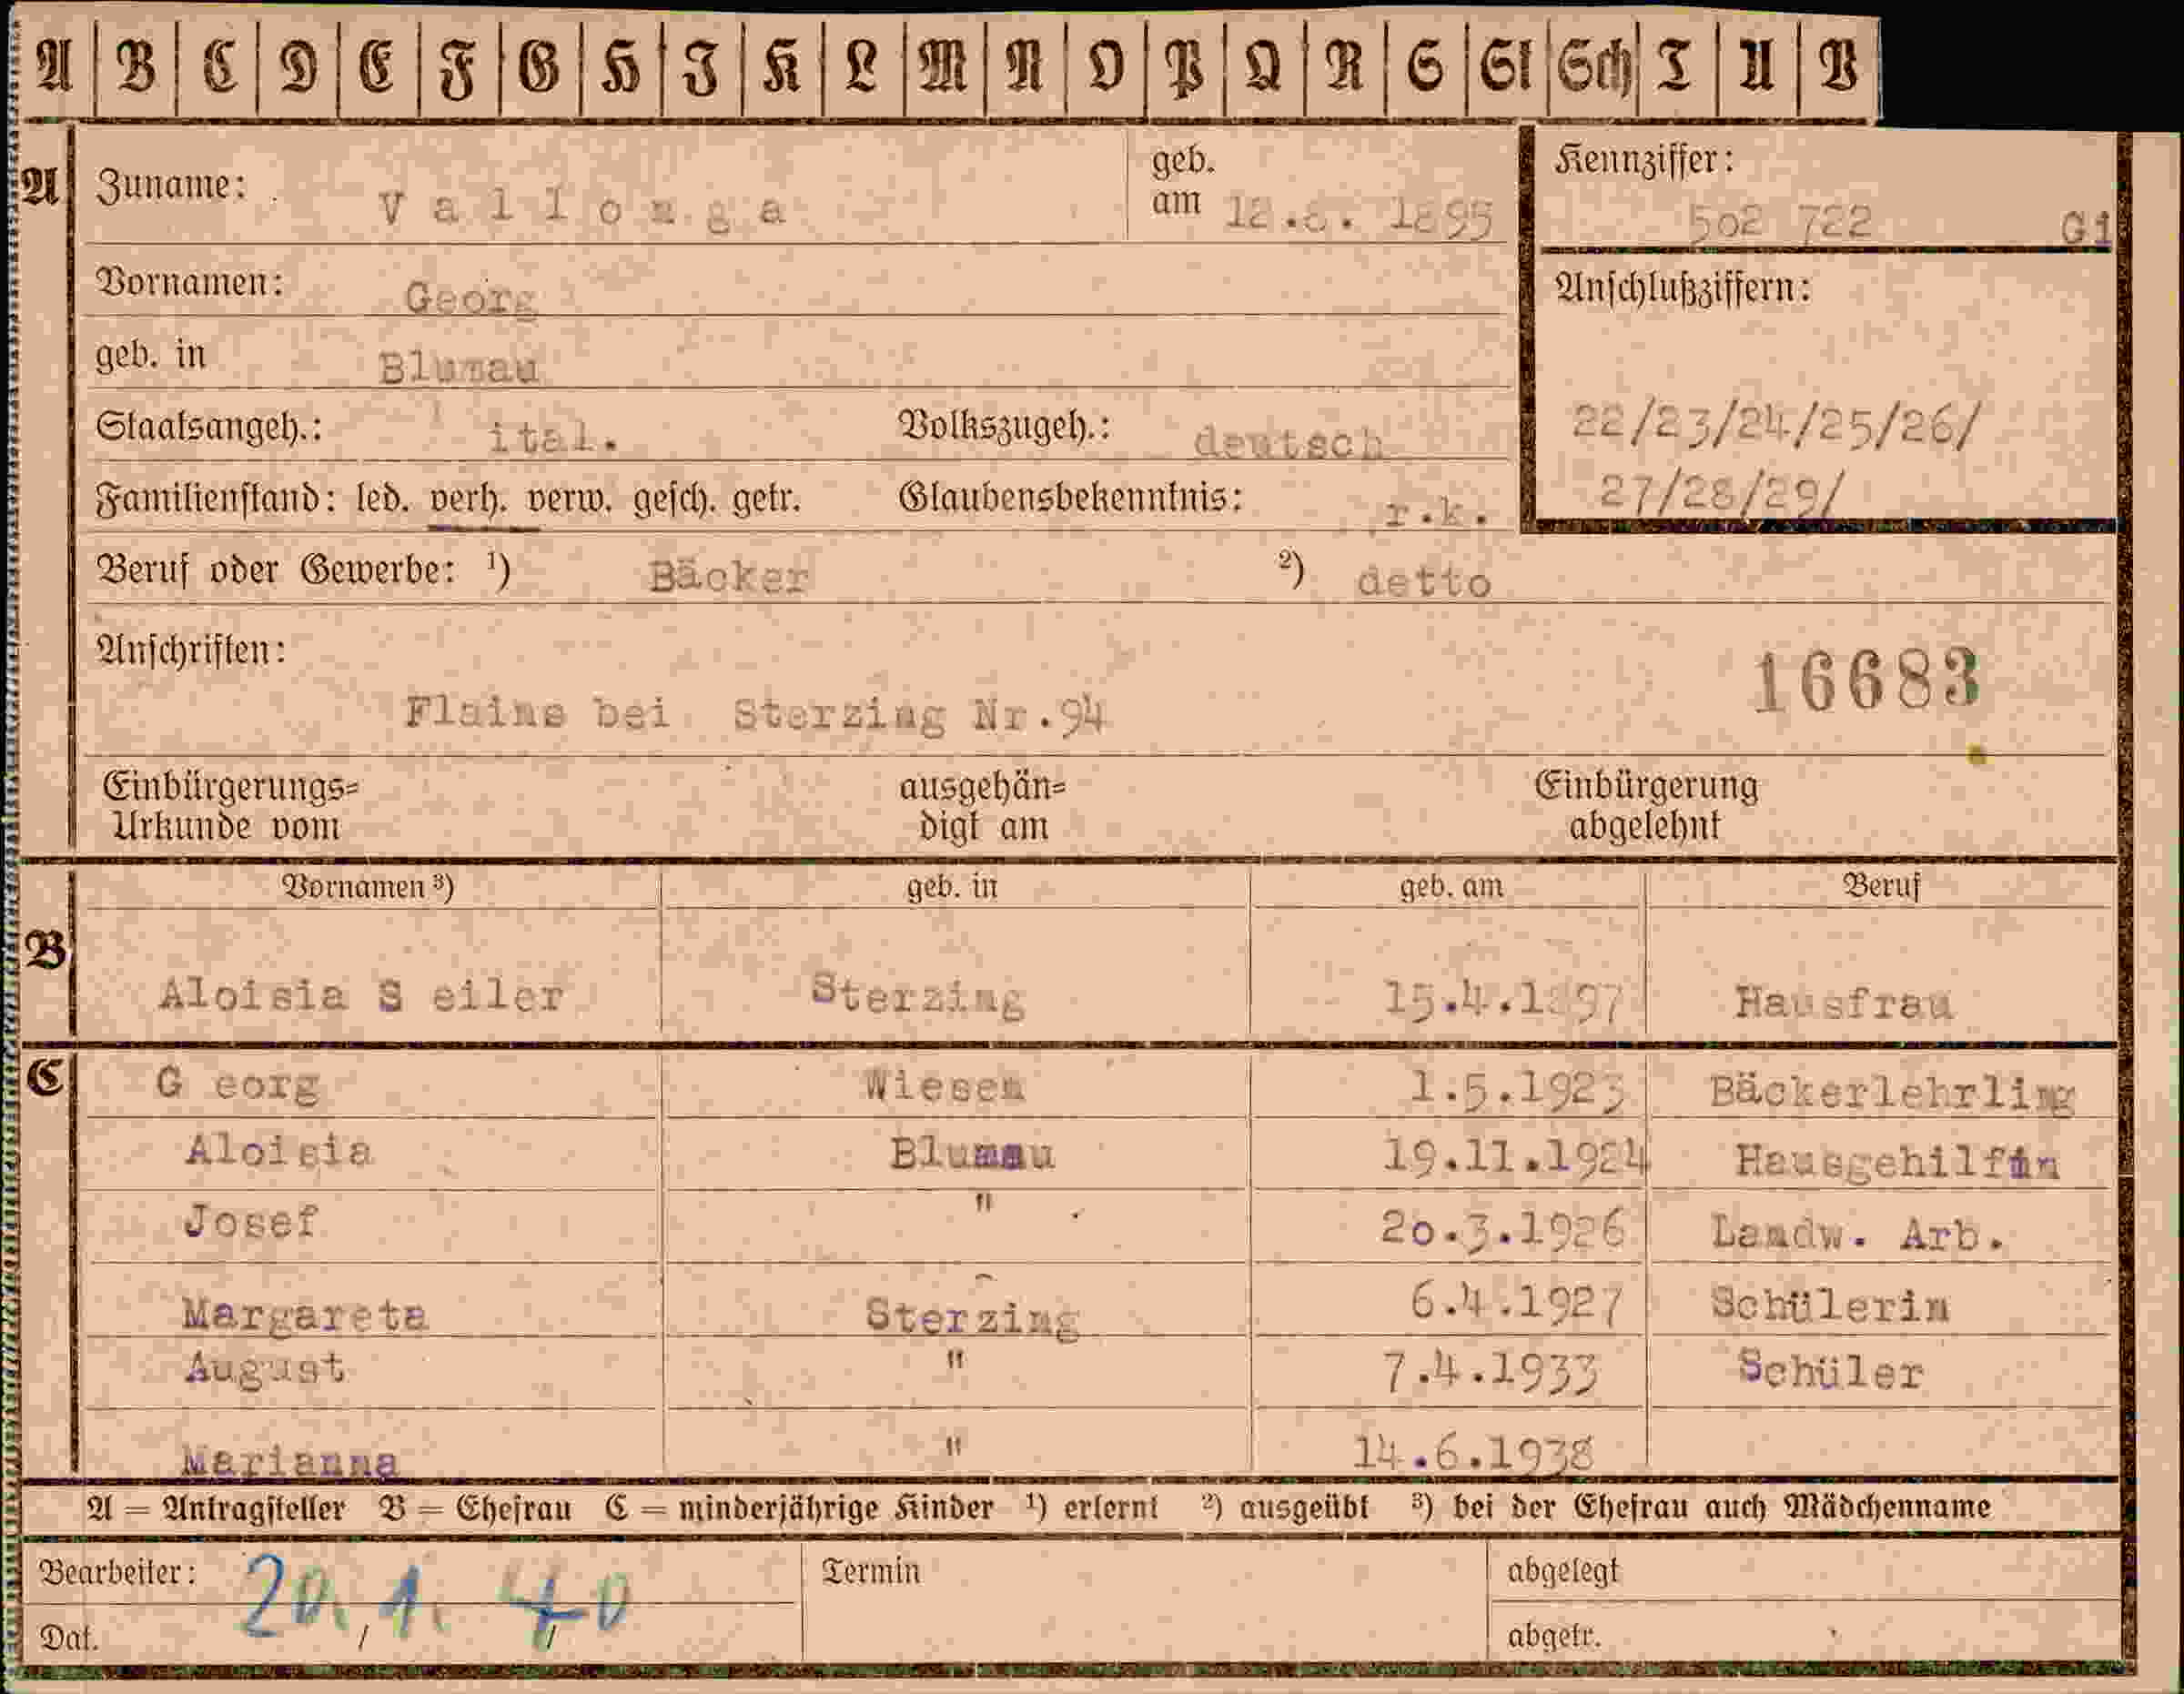 A B C D E F G H I K L M N O P Q R S St Sch T U V
A Zuname: V a l l o n g a geb. am 18.8. 1895
Kennziffer: 502 722 Gi
Vornamen: Georg
geb. in Blumau
Anschlußziffern:
22/23/24/25/26/
27/28/29/
Staatsangeh.: ital. Volkszugeh.: deutsch
Familienstand: led. verh. verw. gesch. getr. Glaubensbekenntnis: r.k.
Beruf oder Gewerbe: 1) Bäcker 2) detto
Anschriften:
16683
Flains bei Sterzing Nr.94
Einbürgerungs= ausgehän= Einbürgerung
Urkunde vom digt am abgelehnt
Vornamen 3) geb. in geb. am Beruf
B Aloisia S eiler Sterzing 15.4.1897 Hausfrau
C G eorg Wiesen 1.5.1923 Bäckerlehrling
Aloisia Blumau 19.11.1924 Hausgehilfin
Josef " 20.3.1926 Landw. Arb.
Margareta Sterzing 6.4.1927 Schülerin
August " 7.4.1933 Schüler
Marianna " 14.6.1938
A = Antragsteller B = Ehefrau C = minderjährige Kinder 1) erlernt 2) ausgeübt 3) bei der Ehefrau auch Mädchenname
Bearbeiter: 20. 1. 40 Termin abgelegt
Dat. / / abgetr.